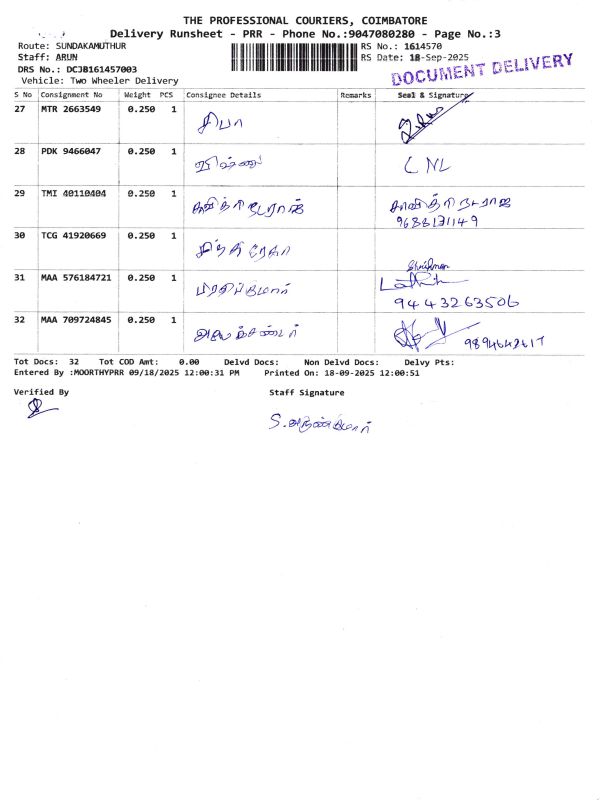 THE PROFESSIONAL COURIERS, COIMBATORE
Delivery Runsheet - PRR - Phone No.:9047080280 - Page No.:3
Route: SUNDAKAMUTHUR RS No.: 1614570
Staff: ARUN RS Date: 18-Sep-2025
DRS No.: DCJB161457003
Vehicle: Two Wheeler Delivery
DOCUMENT DELIVERY
S No Consignment No Weight PCS Consignee Details Remarks Seal & Signature
27 MTR 2663549 0.250 1 சிபா
28 PDK 9466047 0.250 1 விஷ்ணு CNL
29 TMI 40110404 0.250 1 சாவித்ரி நடராஜ்
9688131149
30 TCG 41920669 0.250 1
31 MAA 576184721 0.250 1 பிரதீப்குமார்
9443263506
32 MAA 709724845 0.250 1 அலெக்சண்டர்
Tot Docs: 32 Tot COD Amt: 0.00 Delvd Docs: Non Delvd Docs: Delvy Pts:
Entered By :MOORTHYPRR 09/18/2025 12:00:31 PM Printed On: 18-09-2025 12:00:51
Verified By Staff Signature
S. அருண்குமார்